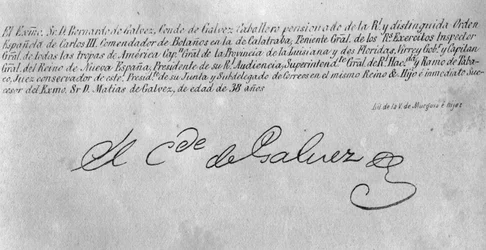 El Exmo. Sr. D. Bernardo de Galvez, Conde de Galvez Caballero pensionado de la Rl. y distinguida Orden
Española de Carlos III. Comendador de Bolaños en la de Calatraba, Teniente Gral. de los Rs. Exercitos Inspector
Gral. de todas las tropas de América Capn. Gral. de la Provincia de la Luisiana y dos Floridas, Virrey Gobr. y Capitan
Gral. del Reino de Nueva España, Presidente de su Rl. Audiencia, Superintendte. Gral. de Rl. Hacda. y Ramo de Taba-
co, Juez conservador de este, Presidte. de su Junta y Subdelegado de Correos en el mismo Reino & Hijo é inmediato Suc-
cesor del Exmo. Sr D. Matias de Galvez, de edad de 38 años
Lit. de la V. de Murguia é hijos
El Cde de Galvez